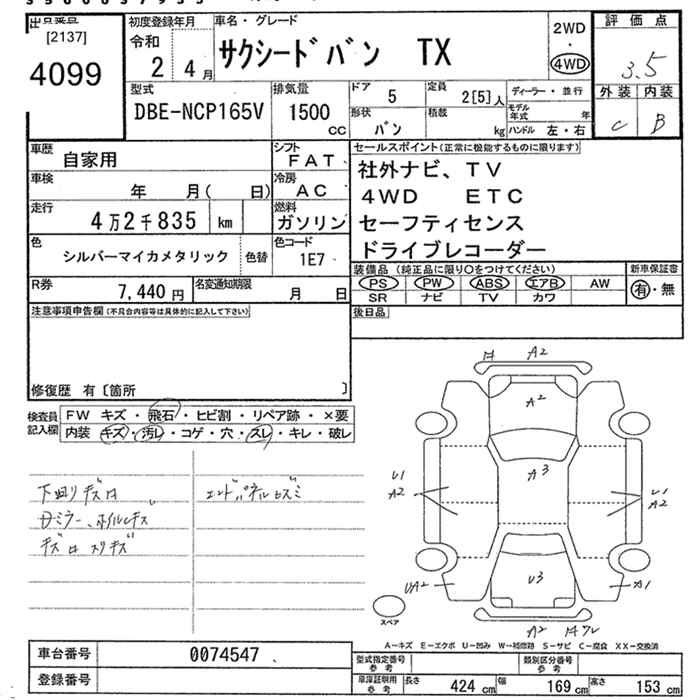 出品番号
[2137]
4099
初度登録年月
令和
2 4月
車名・グレード
サクシードバン TX
2WD
・
4WD
評価点
3.5
外装 内装
C B
型式
DBE-NCP165V
排気量
1500
cc
ドア 5
定員 2[5]人
ディーラー・並行
形状 バン
積載 kg
モデル年式 年
ハンドル 左・右
車歴 自家用
シフト FAT
車検 年 月( 日)
冷房 AC
走行 4万2千835 km
燃料 ガソリン
色 シルバーマイカメタリック 色替
色コード 1E7
R券 7,440円
名変通知期限 月 日
セールスポイント(正常に機能するものに限ります)
社外ナビ、TV
4WD ETC
セーフティセンス
ドライブレコーダー
装備品(純正品に限り○をつけてください)
新車保証書
PS PW ABS エアB AW
SR ナビ TV カワ
有・無
後日品
注意事項申告欄(不具合内容等は具体的に記入して下さい)
修復歴 有〔箇所 〕
検査員記入欄
FW キズ・飛石・ヒビ割・リペア跡・×要
内装 キズ・汚レ・コゲ・穴・スレ・キレ・破レ
下廻りキズ
エンドパネルヒズミ
ミラー、ホイルキズ
キズ スリキズ
A2
A2
A3
U1
A2
U1
A2
U3
UA2
A1
A2
スペア
A−キズ E−エクボ U−凹み W−補修跡 S−サビ C−腐食 XX−交換済
車台番号 0074547
登録番号
型式指定番号 参考
類別区分番号 参考
車庫証明用 参考
長さ 424cm 幅 169cm 高さ 153cm